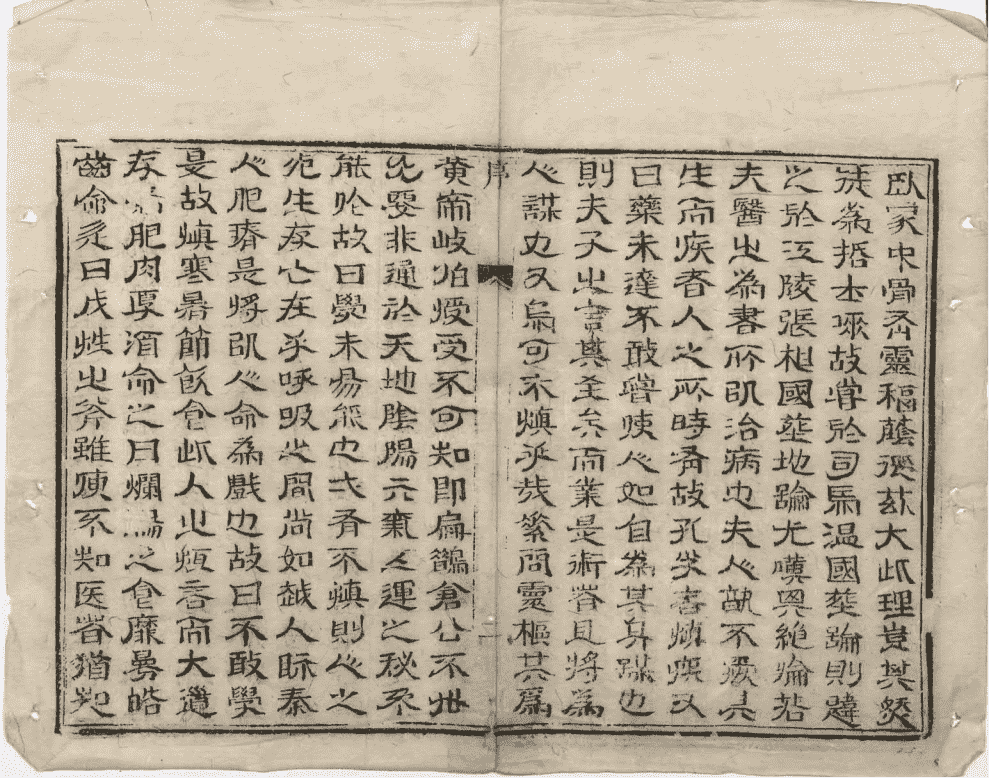 臥家中骨斉靈蔭後玆大此理豈其
徒為哲士故嘗於司馬温國葬論則韙
之於江陵張相國葬地論尤嘆其絶倫若
夫醫之為書所以治病也夫人孰不愛其
生而疾者人之所時有故孔子嘗慎疾又
曰藥未達不敢嘗夫人如自為其身謀也
則夫子之言其至矣而業是術者且將為
人謀也又烏可不慎乎哉素問靈樞其為
序
二
黄帝岐伯授受不可知即扁鵲倉公不世
要非通於天地陰陽六氣五運之秘不
能故曰學未易能也有不慎則人之
死生存亡在乎呼吸之間尚如越人眎秦
人肥瘠是將以人命為戲也故曰不敢學
是故慎寒暑節飲食此人之恒言而大道
存焉肥肉厚酒命之曰爛腸之食靡曼皓
齒命之曰伐性之斧雖不知医者猶知